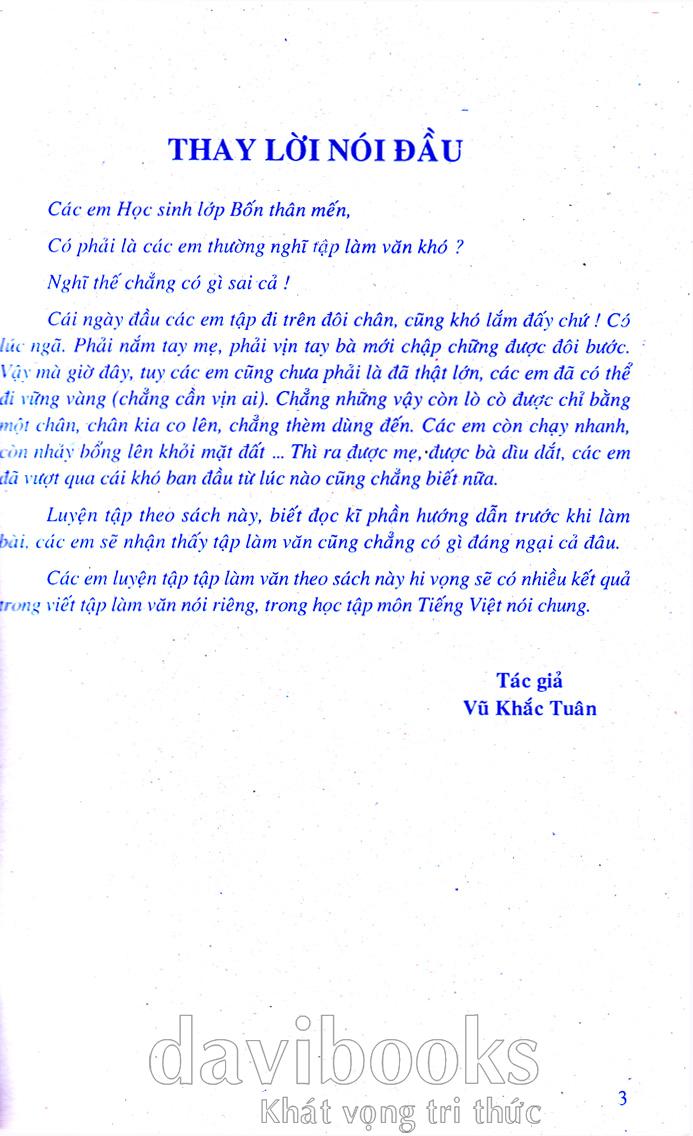 THAY LỜI NÓI ĐẦU
Các em Học sinh lớp Bốn thân mến,
Có phải là các em thường nghĩ tập làm văn khó ?
Nghĩ thế chẳng có gì sai cả !
Cái ngày đầu các em tập đi trên đôi chân, cũng khó lắm đấy chứ ! Có
lúc ngã. Phải nắm tay mẹ, phải vịn tay bà mới chập chững được đôi bước.
Vậy mà giờ đây, tuy các em cũng chưa phải là đã thật lớn, các em đã có thể
đi vững vàng (chẳng cần vịn ai). Chẳng những vậy còn lò cò được chỉ bằng
một chân, chân kia co lên, chẳng thèm dùng đến. Các em còn chạy nhanh,
còn nhảy bổng lên khỏi mặt đất ... Thì ra được mẹ, được bà dìu dắt, các em
đã vượt qua cái khó ban đầu từ lúc nào cũng chẳng biết nữa.
Luyện tập theo sách này, biết đọc kĩ phần hướng dẫn trước khi làm
bài, các em sẽ nhận thấy tập làm văn cũng chẳng có gì đáng ngại cả đâu.
Các em luyện tập tập làm văn theo sách này hi vọng sẽ có nhiều kết quả
trong viết tập làm văn nói riêng, trong học tập môn Tiếng Việt nói chung.
Tác giả
Vũ Khắc Tuân
davibooks
Khát vọng tri thức
3